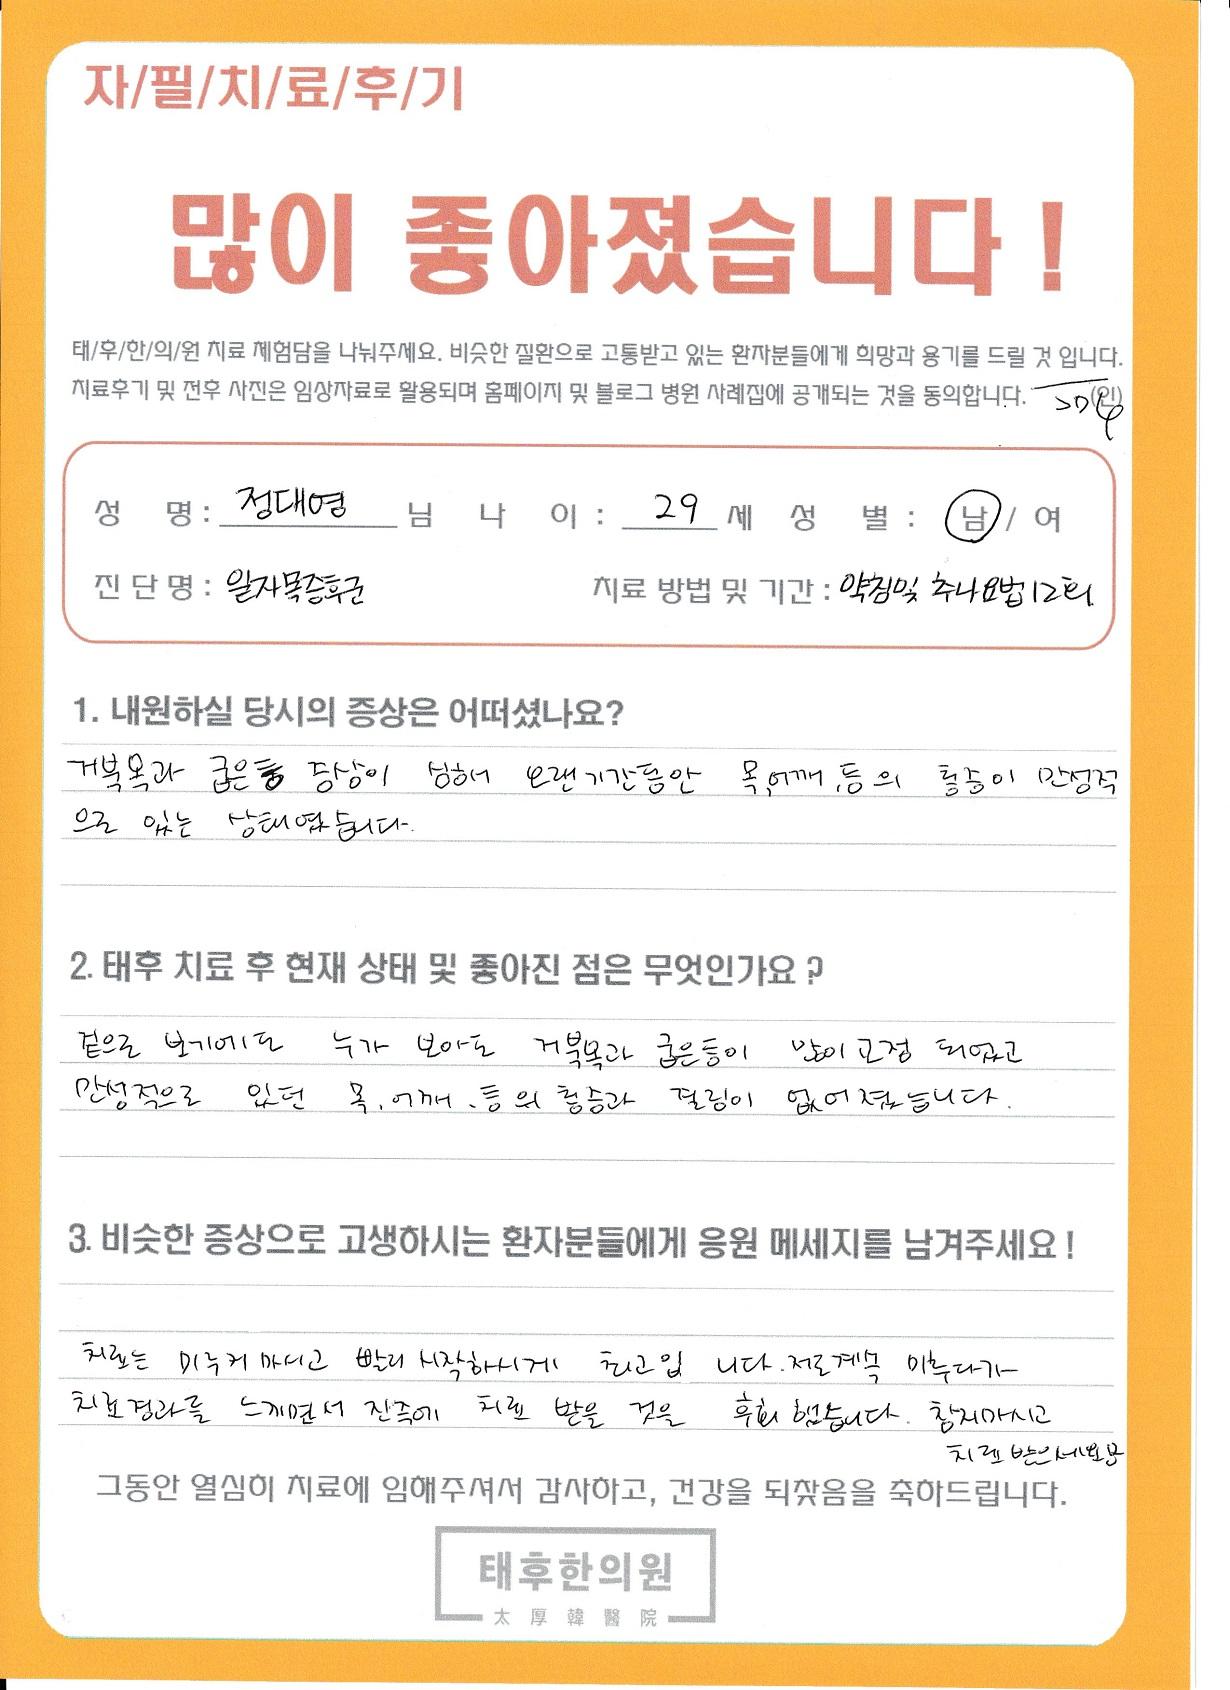 자/필/치/료/후/기
많이 좋아졌습니다 !
태/후/한/의/원 치료 체험담을 나눠주세요. 비슷한 질환으로 고통받고 있는 환자분들에게 희망과 용기를 드릴 것 입니다.
치료후기 및 전후 사진은 임상자료로 활용되며 홈페이지 및 블로그 병원 사례집에 공개되는 것을 동의합니다. (인)
성 명 : 정대영 님 나 이 : 29 세 성 별 : 남 / 여
진 단 명 : 일자목증후군 치료 방법 및 기간 : 약침및 추나요법 12회
1. 내원하실 당시의 증상은 어떠셨나요?
거북목과 굽은등 증상이 심해서 오랜기간동안 목,어깨,등의 통증이 만성적
으로 있는 상태였습니다.
2. 태후 치료 후 현재 상태 및 좋아진 점은 무엇인가요 ?
겉으로 보기에도 누가 보아도 거북목과 굽은등이 많이 교정 되었고
만성적으로 있던 목,어깨,등의 통증과 결림이 없어졌습니다.
3. 비슷한 증상으로 고생하시는 환자분들에게 응원 메세지를 남겨주세요 !
치료는 미루지 마시고 빨리 시작하시게 최고입 니다. 저도계속 미루다가
치료경과를 느끼면서 진즉에 치료 받을 것을 후회 했습니다. 참지마시고
치료 받으세요
그동안 열심히 치료에 임해주셔서 감사하고, 건강을 되찾음을 축하드립니다.
태후한의원
太 厚 韓 醫 院